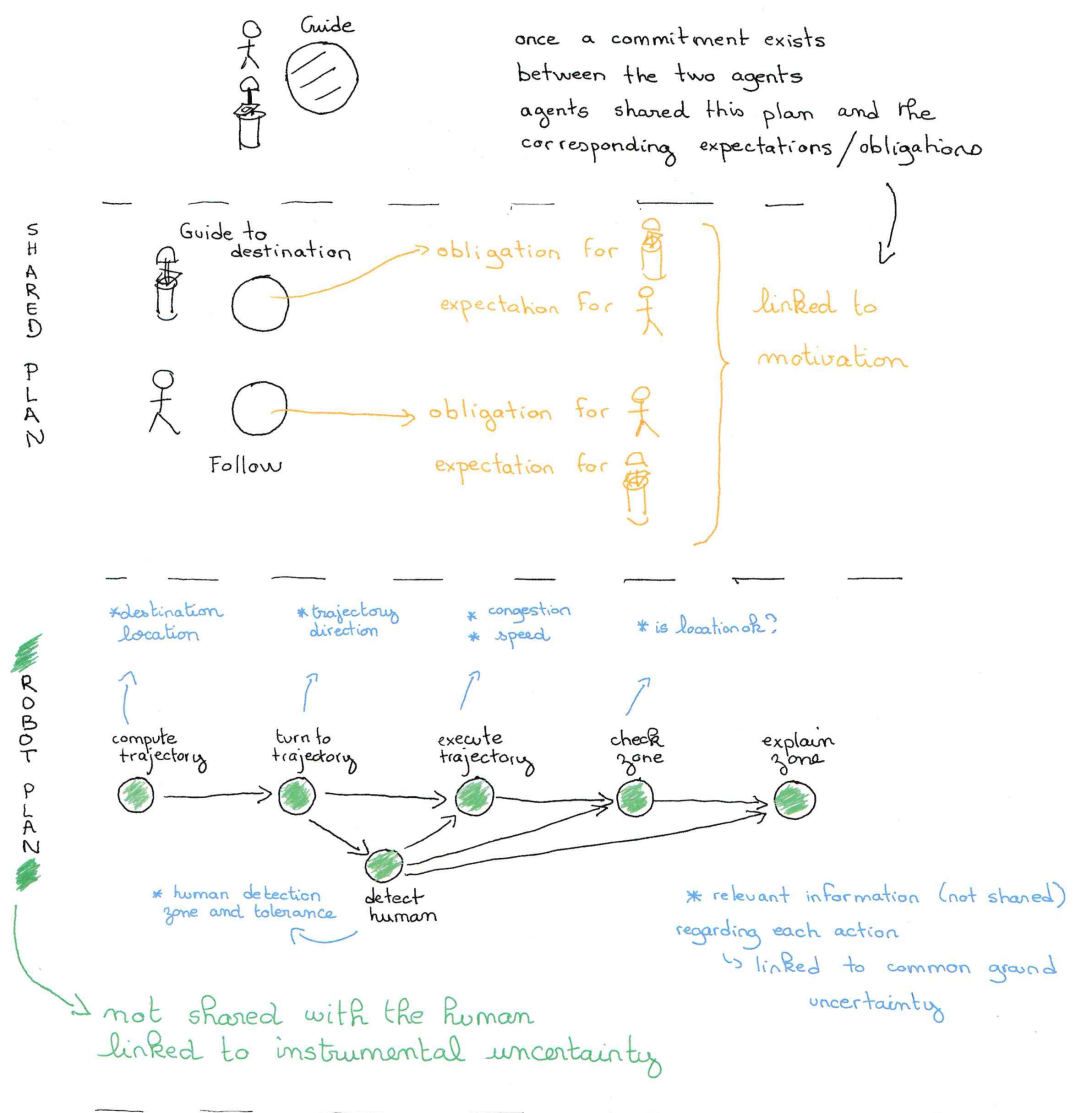 Guide
once a commitment exists
between the two agents
agents shared this plan and the
corresponding expectations/obligations
SHARED PLAN
Guide to
destination
obligation for
expectation for
linked to
motivation
obligation for
expectation for
Follow
*destination
location
*trajectory
direction
* congestion
* speed
* is location ok?
ROBOT PLAN
compute
trajectory
turn to
trajectory
execute
trajectory
check
zone
explain
zone
detect
human
* human detection
zone and tolerance
* relevant information (not shared)
regarding each action
↳ linked to common ground
uncertainty
not shared with the human
linked to instrumental uncertainty